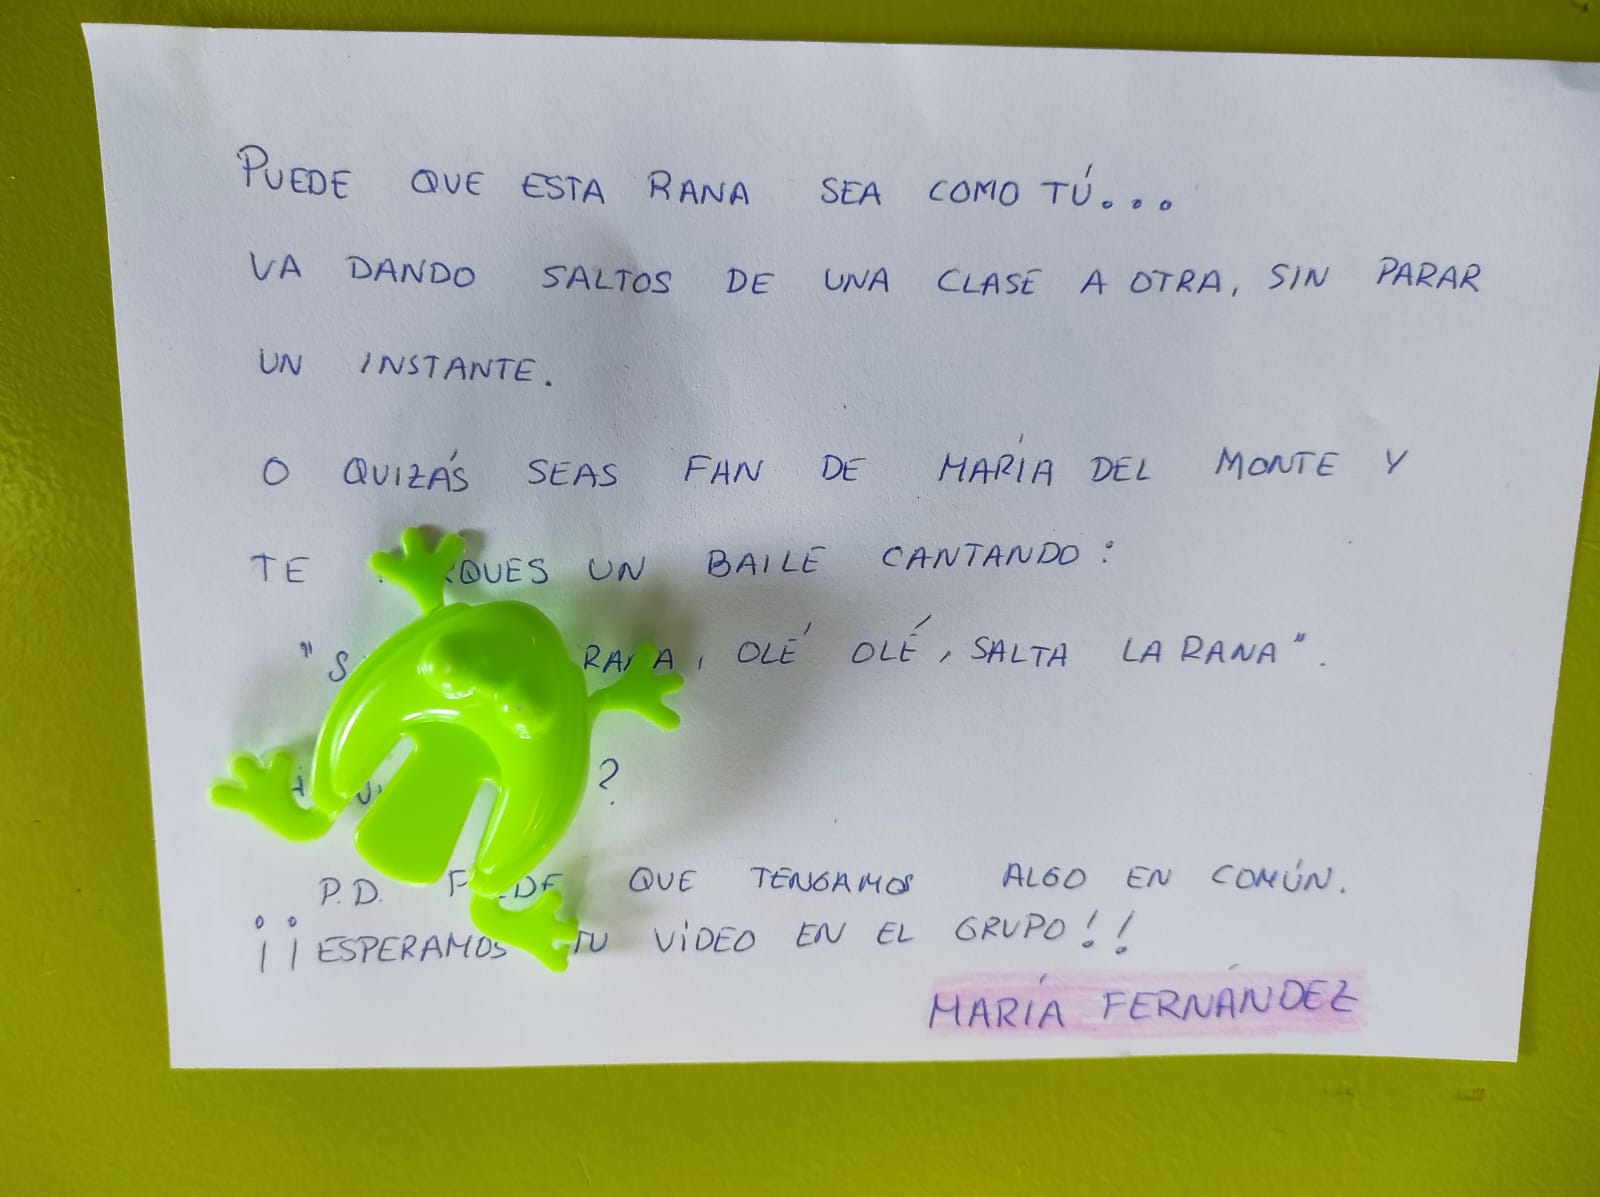 PUEDE QUE ESTA RANA SEA COMO TÚ...
VA DANDO SALTOS DE UNA CLASE A OTRA, SIN PARAR
UN INSTANTE.
O QUIZÁS SEAS FAN DE MARÍA DEL MONTE Y
TE UN BAILE CANTANDO:
RANA, OLÉ OLÉ, SALTA LA RANA".
?
P.D. PUEDE QUE TENGAMOS ALGO EN COMÚN.
¡¡ESPERAMOS TU VIDEO EN EL GRUPO!!
MARÍA FERNÁNDEZ